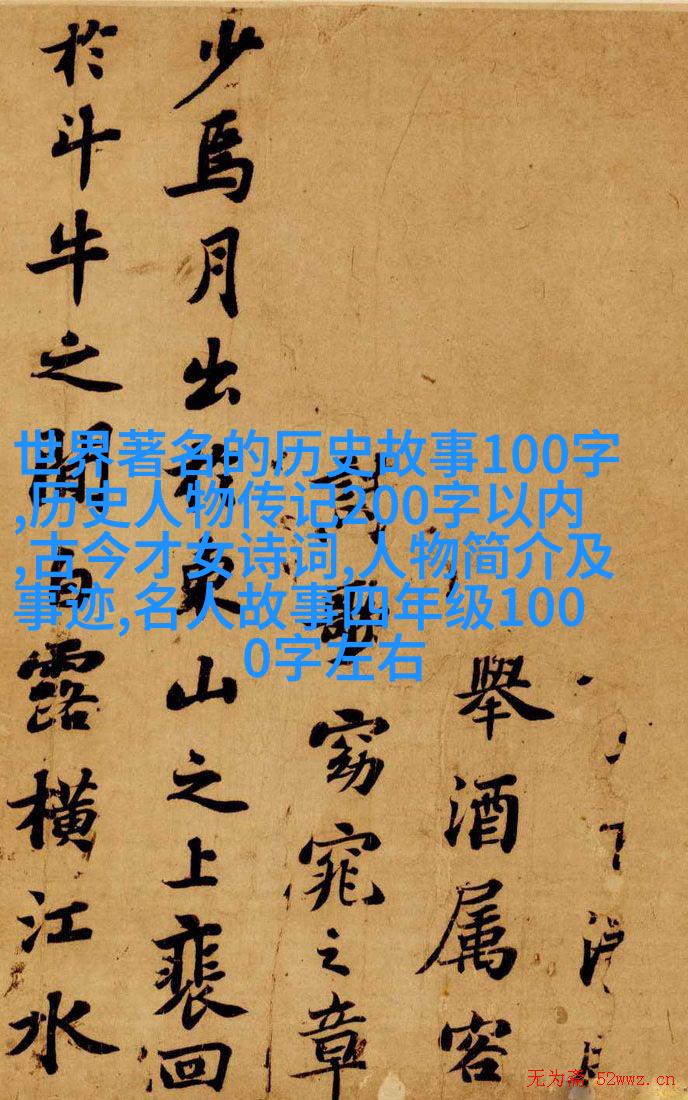 舉酒属客
詩歌窈窕之章
少焉月出於東山之上裴回
於斗牛之間白露橫江水
世界著名的历史故事100字
,历史人物传记200字以内
,古今才女诗词,人物简介及
事迹,名人故事四年级100
0字左右
无为斋 52wwz.cn